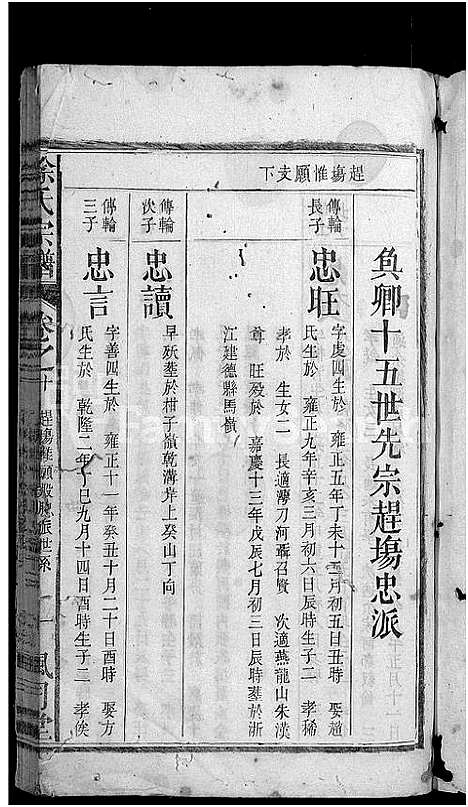 趕塲惟願支下
負卿十五世先宗趕塲忠派
傳輪長子
忠旺
字虔四生於 雍正五年丁未十二月初五日丑時 娶趙
氏生於 雍正九年辛亥三月初六日辰時生子二 孝稀
孝於 生女二 長適灣刀河聶召賢 次適燕龍山朱漢
尊 旺歿於 嘉慶十三年戊辰七月初三日辰時塟於浙
江建德縣馬嶺
傳輪次子
忠讀
早殀塟於柑子嶺乾溝垾上癸山丁向
傳輪三子
忠言
字善四生於 雍正十一年癸丑十月二十日酉時 娶方
氏生於 乾隆二年丁巳九月十四日酉時生子二 孝俟
徐氏宗譜
卷之十
趕塲惟願
派世系